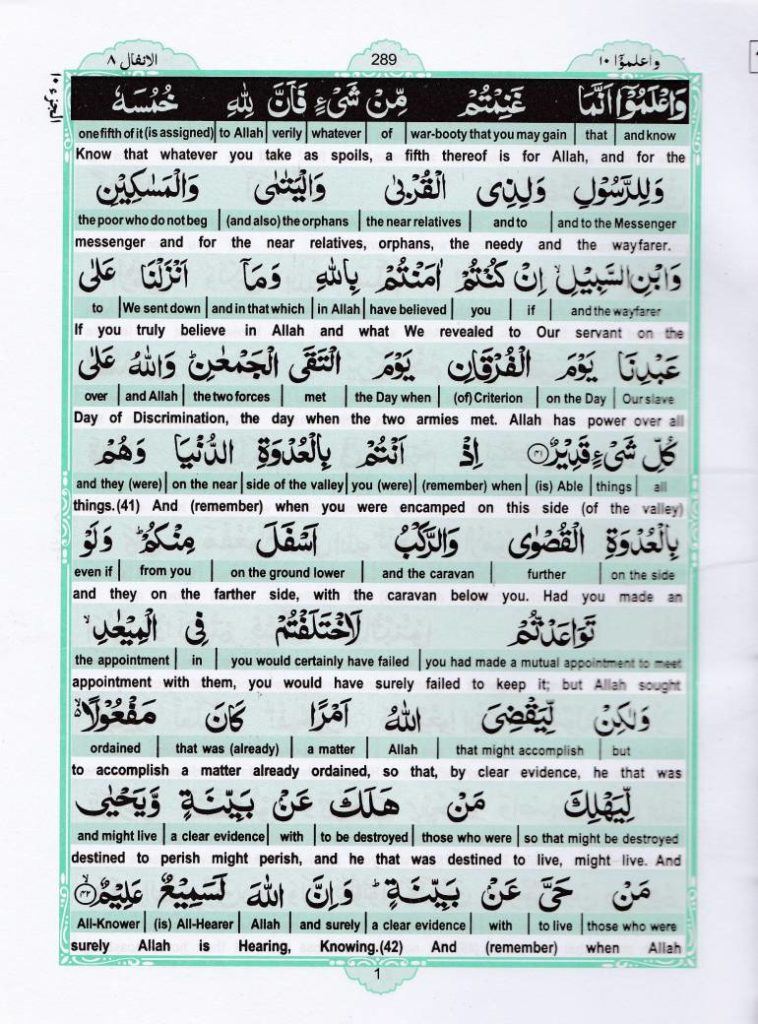 الانفال ٨ 289 واعلموٓا ١٠
الجزء ١٠
وَاعْلَمُوْٓا اَنَّمَا غَنِمْتُمْ مِّنْ شَیْءٍ فَاَنَّ لِلّٰهِ خُمُسَهٗ
one fifth of it (is assigned) | to Allah | verily | whatever | of | war-booty that you may gain | that | and know
Know that whatever you take as spoils, a fifth thereof is for Allah, and for the
وَلِلرَّسُوْلِ وَلِذِی الْقُرْبٰی وَالْیَتٰمٰی وَالْمَسٰكِیْنِ
the poor who do not beg | (and also) the orphans | the near relatives | and to | and to the Messenger
messenger and for the near relatives, orphans, the needy and the wayfarer.
وَابْنِ السَّبِیْلِ ۙ اِنْ كُنْتُمْ اٰمَنْتُمْ بِاللّٰهِ وَمَاۤ اَنْزَلْنَا عَلٰی
to | We sent down | and in that which | in Allah | have believed | you | if | and the wayfarer
If you truly believe in Allah and what We revealed to Our servant on the
عَبْدِنَا یَوْمَ الْفُرْقَانِ یَوْمَ الْتَقَی الْجَمْعٰنِ ؕ وَاللّٰهُ عَلٰی
over | and Allah | the two forces | met | the Day when | (of) Criterion | on the Day | Our slave
Day of Discrimination, the day when the two armies met. Allah has power over all
كُلِّ شَیْءٍ قَدِیْرٌ ﴿۴۱﴾ اِذْ اَنْتُمْ بِالْعُدْوَةِ الدُّنْیَا وَهُمْ
and they (were) | on the near | side of the valley | you (were) | (remember) when | (is) Able | things | all
things.(41) And (remember) when you were encamped on this side (of the valley)
بِالْعُدْوَةِ الْقُصْوٰی وَالرَّكْبُ اَسْفَلَ مِنْكُمْ ؕ وَلَوْ
even if | from you | on the ground lower | and the caravan | further | on the side
and they on the farther side, with the caravan below you. Had you made an
تَوَاعَدْتُّمْ لَاخْتَلَفْتُمْ فِی الْمِیْعٰدِ ۙ
the appointment | in | you would certainly have failed | you had made a mutual appointment to meet
appointment with them, you would have surely failed to keep it; but Allah sought
وَلٰكِنْ لِّیَقْضِیَ اللّٰهُ اَمْرًا كَانَ مَفْعُوْلًا ۙ۬
ordained | that was (already) | a matter | Allah | that might accomplish | but
to accomplish a matter already ordained, so that, by clear evidence, he that was
لِّیَهْلِكَ مَنْ هَلَكَ عَنْ بَیِّنَةٍ وَّیَحْیٰی
and might live | a clear evidence | with | to be destroyed | those who were | so that might be destroyed
destined to perish might perish, and he that was destined to live, might live. And
مَنْ حَیَّ عَنْ بَیِّنَةٍ ؕ وَاِنَّ اللّٰهَ لَسَمِیْعٌ عَلِیْمٌ ﴿ۙ۴۲﴾
All-Knower | (is) All-Hearer | Allah | and surely | a clear evidence | with | to live | those who were
surely Allah is Hearing, Knowing.(42) And (remember) when Allah
1